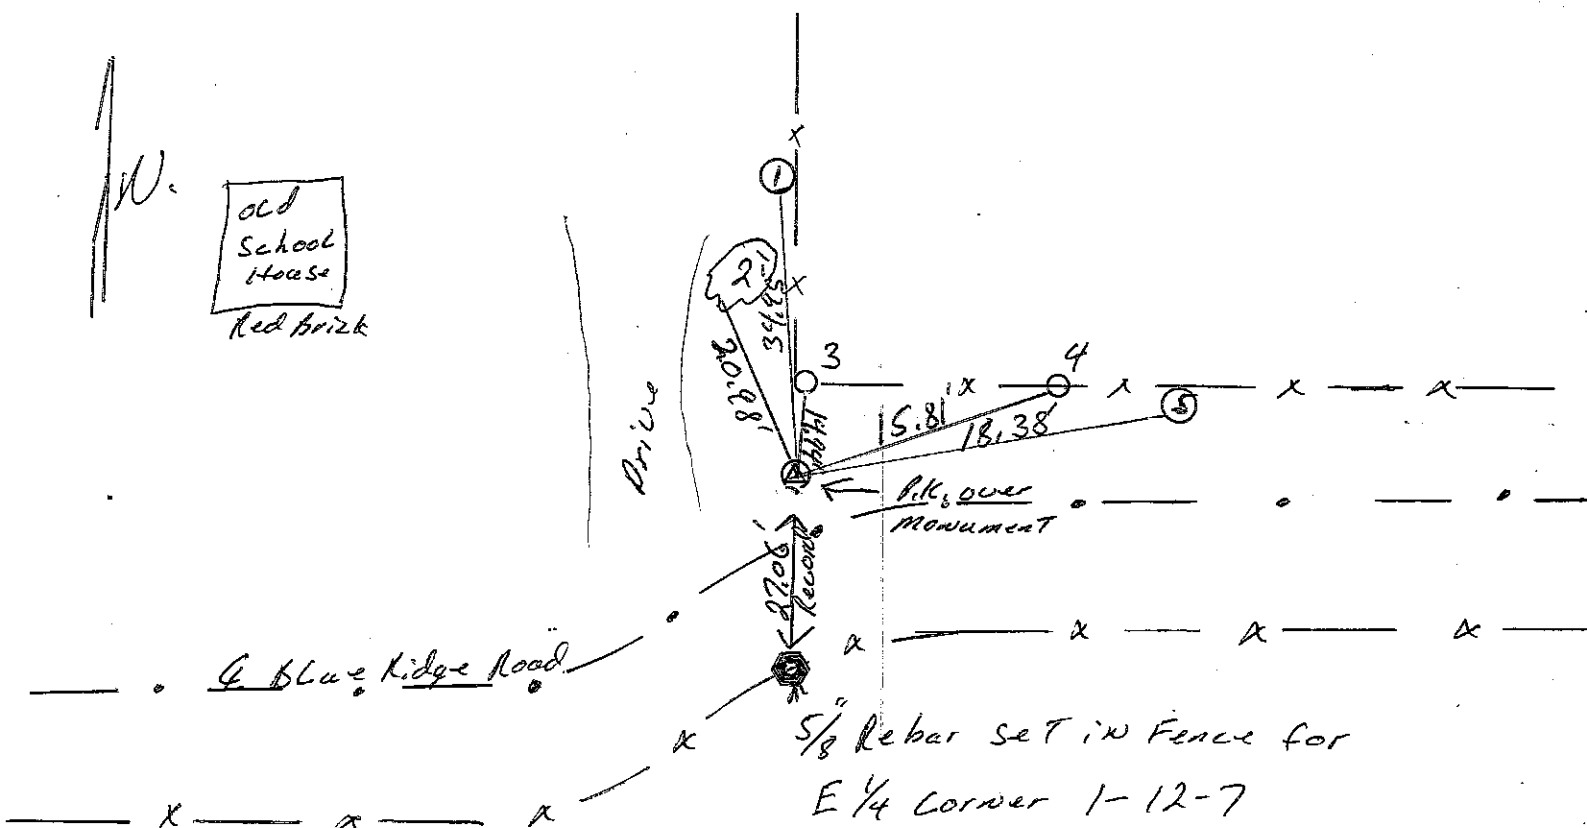 N.
old
School
House
Red Brick
Drive
1
2
3
4
5
34.95'
20.98'
14.94'
15.81'
18.38'
P.K. over
monument
27.06'
Record
℄ Blue Ridge Road
5/8" Rebar set in Fence for
E 1/4 Corner 1-12-7